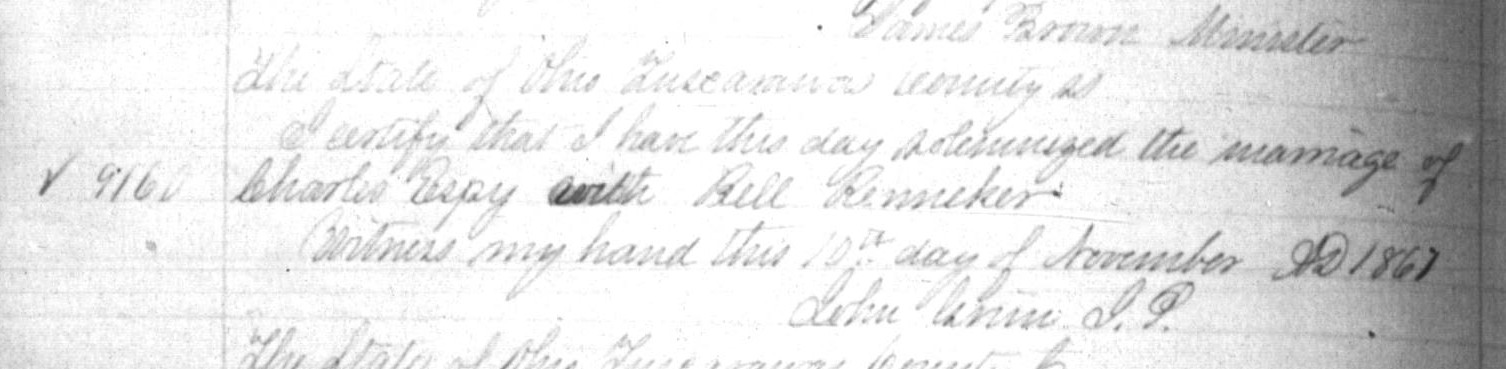 James Brown Minister
The State of Ohio Tuscarawas County ss
I certify that I have this day solemnized the marriage of
✓ 9160 Charles Espy with Bell Renneker
Witness my hand this 10th day of November AD 1867
John J. P.
The State of Ohio Tuscarawas County